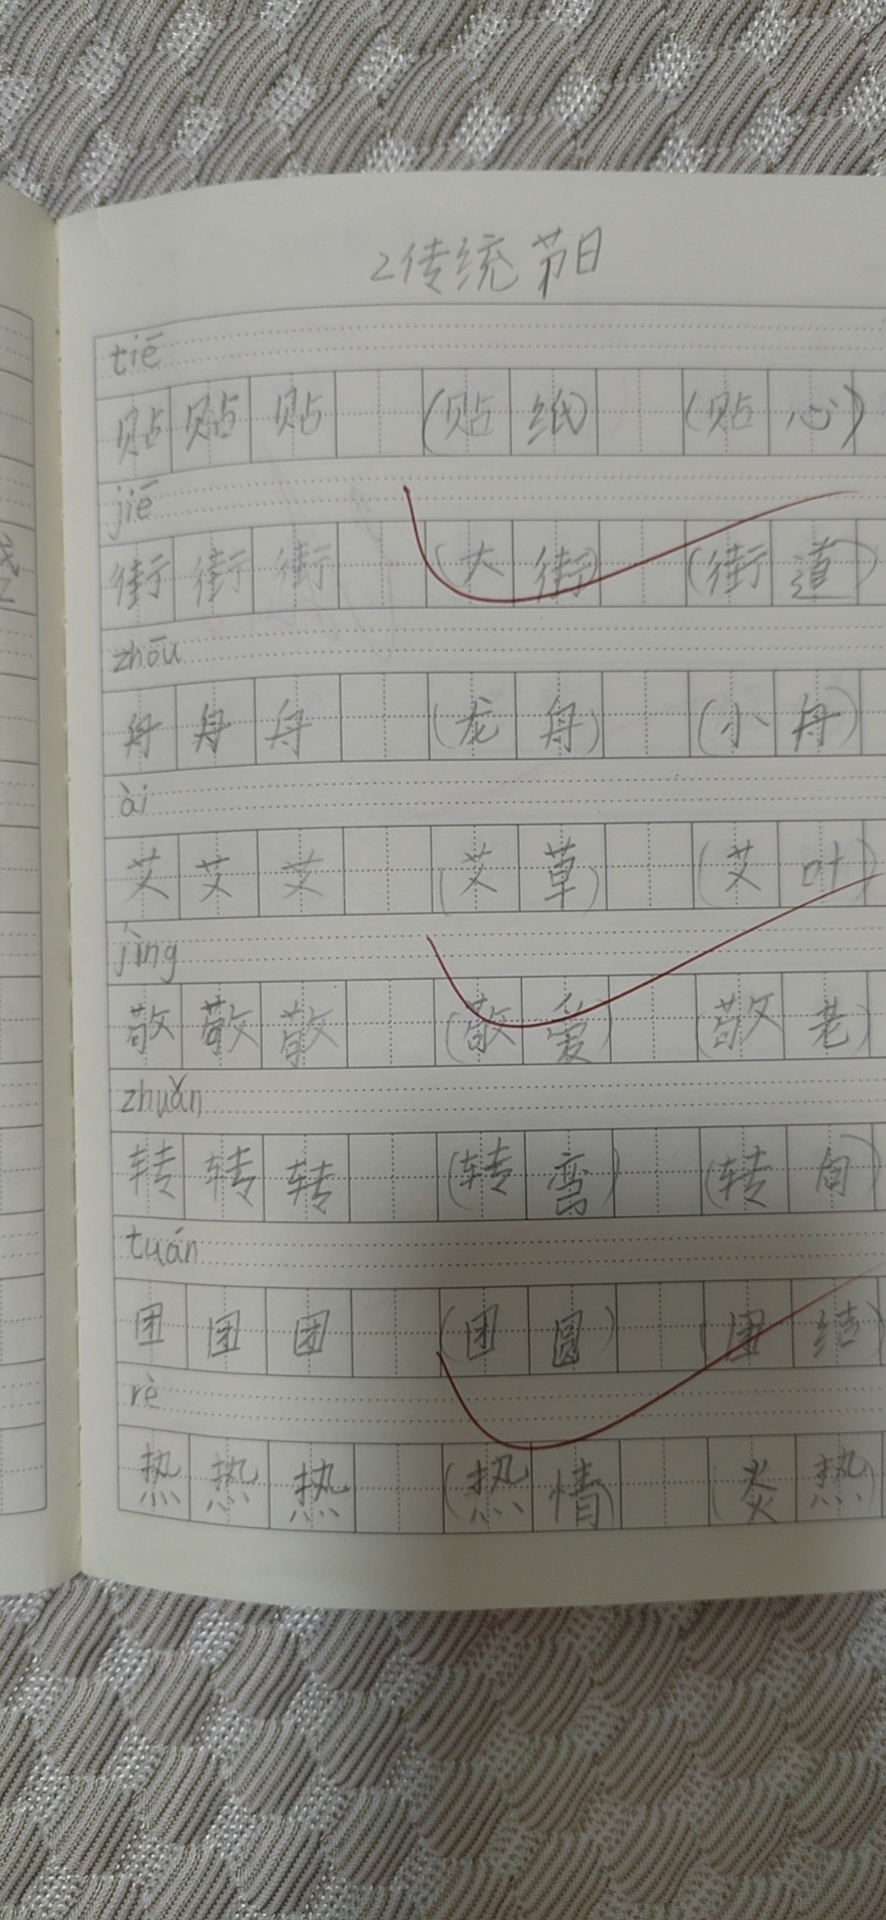 2传统节日
tiē
贴贴贴(贴纸)(贴心)
jiē
街街街(大街)(街道)
zhōu
舟舟舟(龙舟)(小舟)
ài
艾艾艾(艾草)(艾叶)
jìng
敬敬敬(敬爱)(敬老)
zhuǎn
转转转(转弯)(转向)
tuán
团团团(团圆)(团结)
rè
热热热(热情)(炎热)